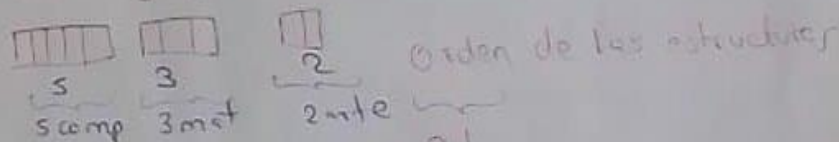 Orden de las estructuras
5 3 2
5 comp 3 mat 2 arte